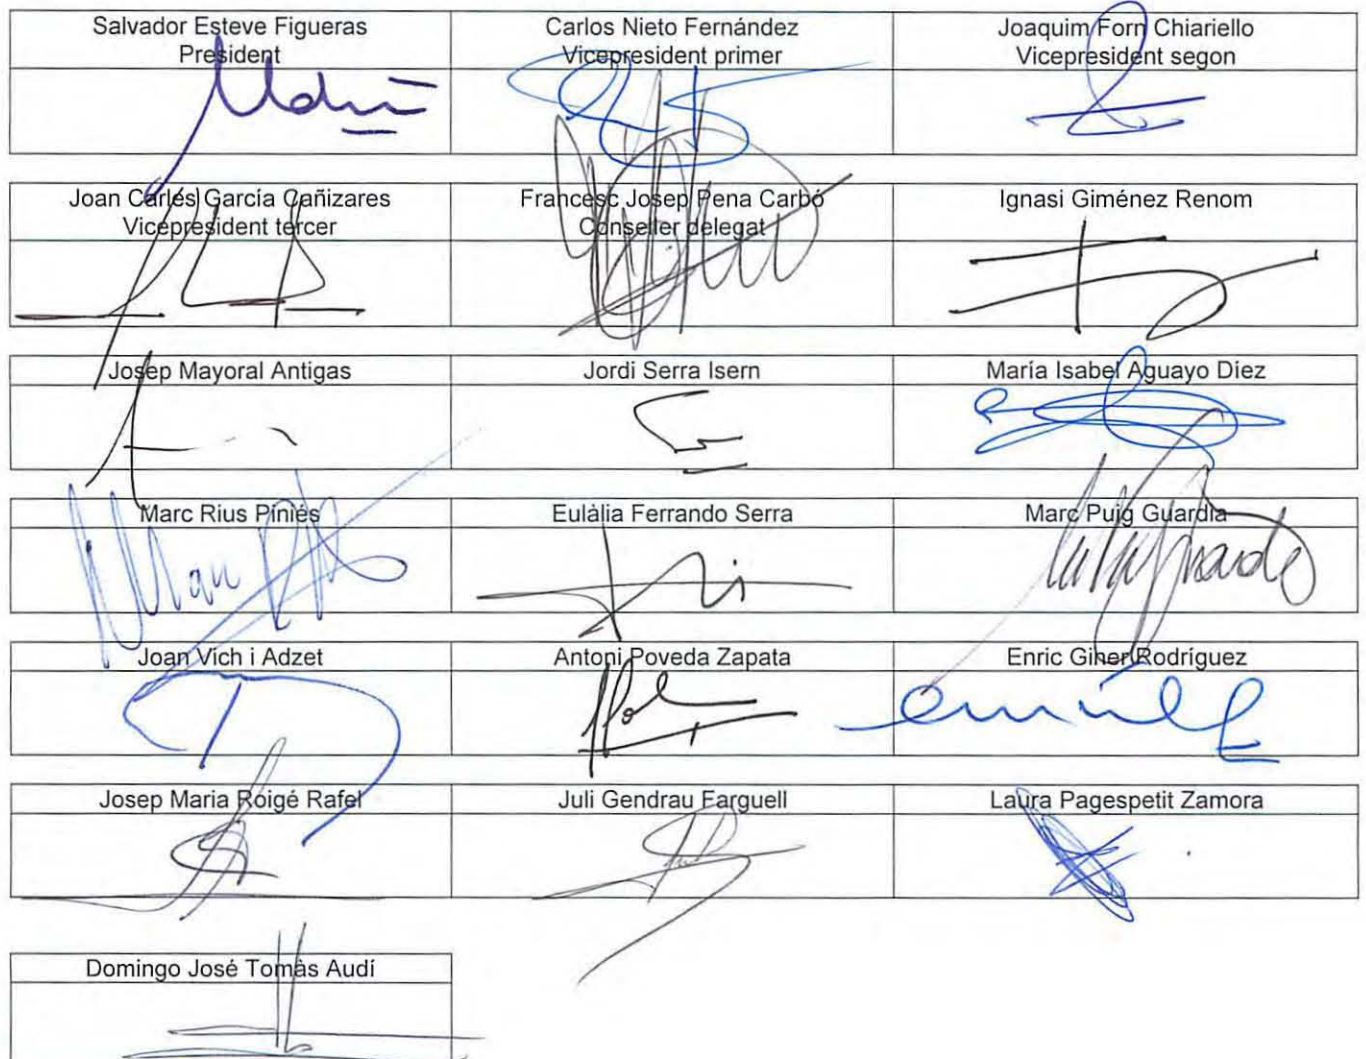 Salvador Esteve Figueras
President
Carlos Nieto Fernández
Vicepresident primer
Joaquim Forn Chiariello
Vicepresident segon
Joan Carles García Cañizares
Vicepresident tercer
Francesc Josep Pena Carbó
Conseller delegat
Ignasi Giménez Renom
Josep Mayoral Antigas
Jordi Serra Isern
María Isabel Aguayo Díez
Marc Rius Piniés
Eulàlia Ferrando Serra
Marc Puig Guardia
Joan Vich i Adzet
Antoni Poveda Zapata
Enric Giner Rodríguez
Josep Maria Roigé Rafel
Juli Gendrau Farguell
Laura Pagespetit Zamora
Domingo José Tomàs Audí